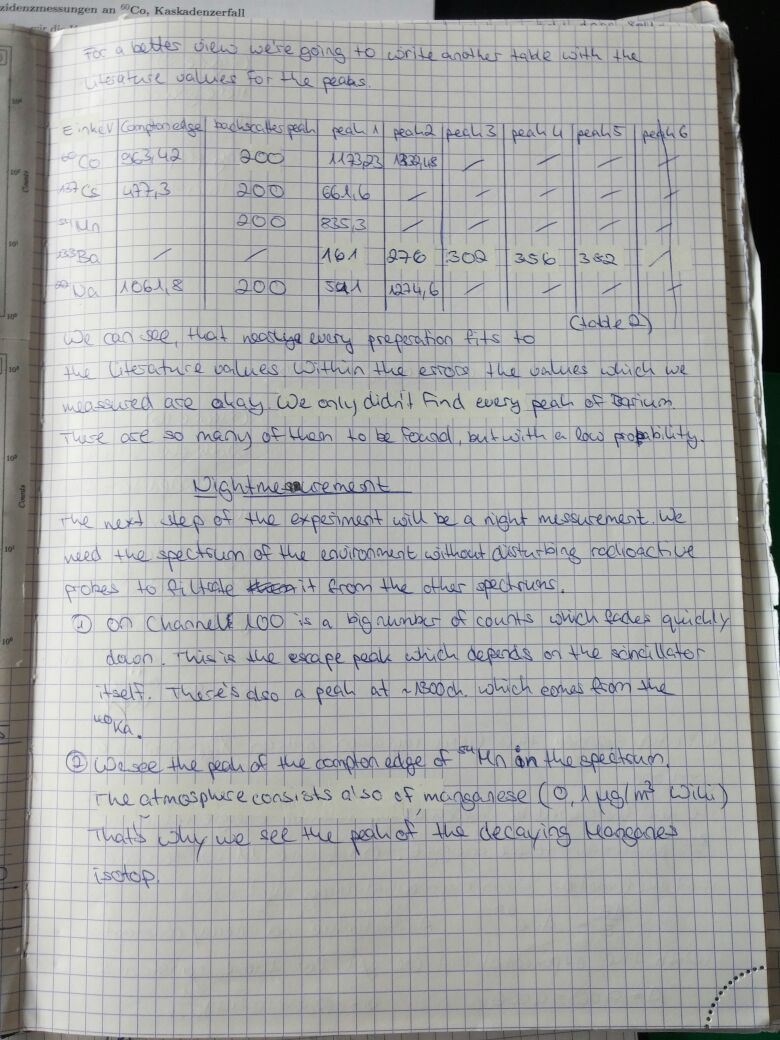 zidenzmessungen an ⁶⁰Co, Kaskadenzerfall
For a better view we're going to write another table with the
literature values for the peaks.
E in keV | Compton edge | backscatter peak | peak 1 | peak 2 | peak 3 | peak 4 | peak 5 | peak 6
⁶⁰Co | 963,42 | 200 | 1173,23 | 1332,48 | / | / | / | /
¹³⁷Cs | 477,3 | 200 | 661,6 | / | / | / | / | /
⁵⁴Mn | | 200 | 835,3 | / | / | / | / | /
¹³³Ba | / | / | 161 | 276 | 302 | 356 | 382 | /
Na | 1061,8 | 200 | 511 | 1274,6 | / | / | / | /
(table 2)
We can see, that every preperation fits to
the literature values. Within the errors the values which we
meassured are okay. We only didn't find every peak of Barium.
There are so many of them to be found, but with a low probability.
Nightmeasurement
The next step of the experiment will be a night messurement. We
need the spectrum of the environment without disturbing radioactive
probes to filtrate it from the other spectrums.
① On Channel 100 is a big number of counts which fades quickly
down. This is the escape peak which depends on the scincillator
itself. There's also a peak at ~1300ch. which comes from the
⁴⁰Ka.
② We see the peak of the compton edge of ⁵⁴Mn in the spectrum.
The atmosphere consists also of manganese (0,1 µg/m³ Wiki)
That's why we see the peak of the decaying Manganes
isotop.
Counts
10⁰
10¹
10²
10³